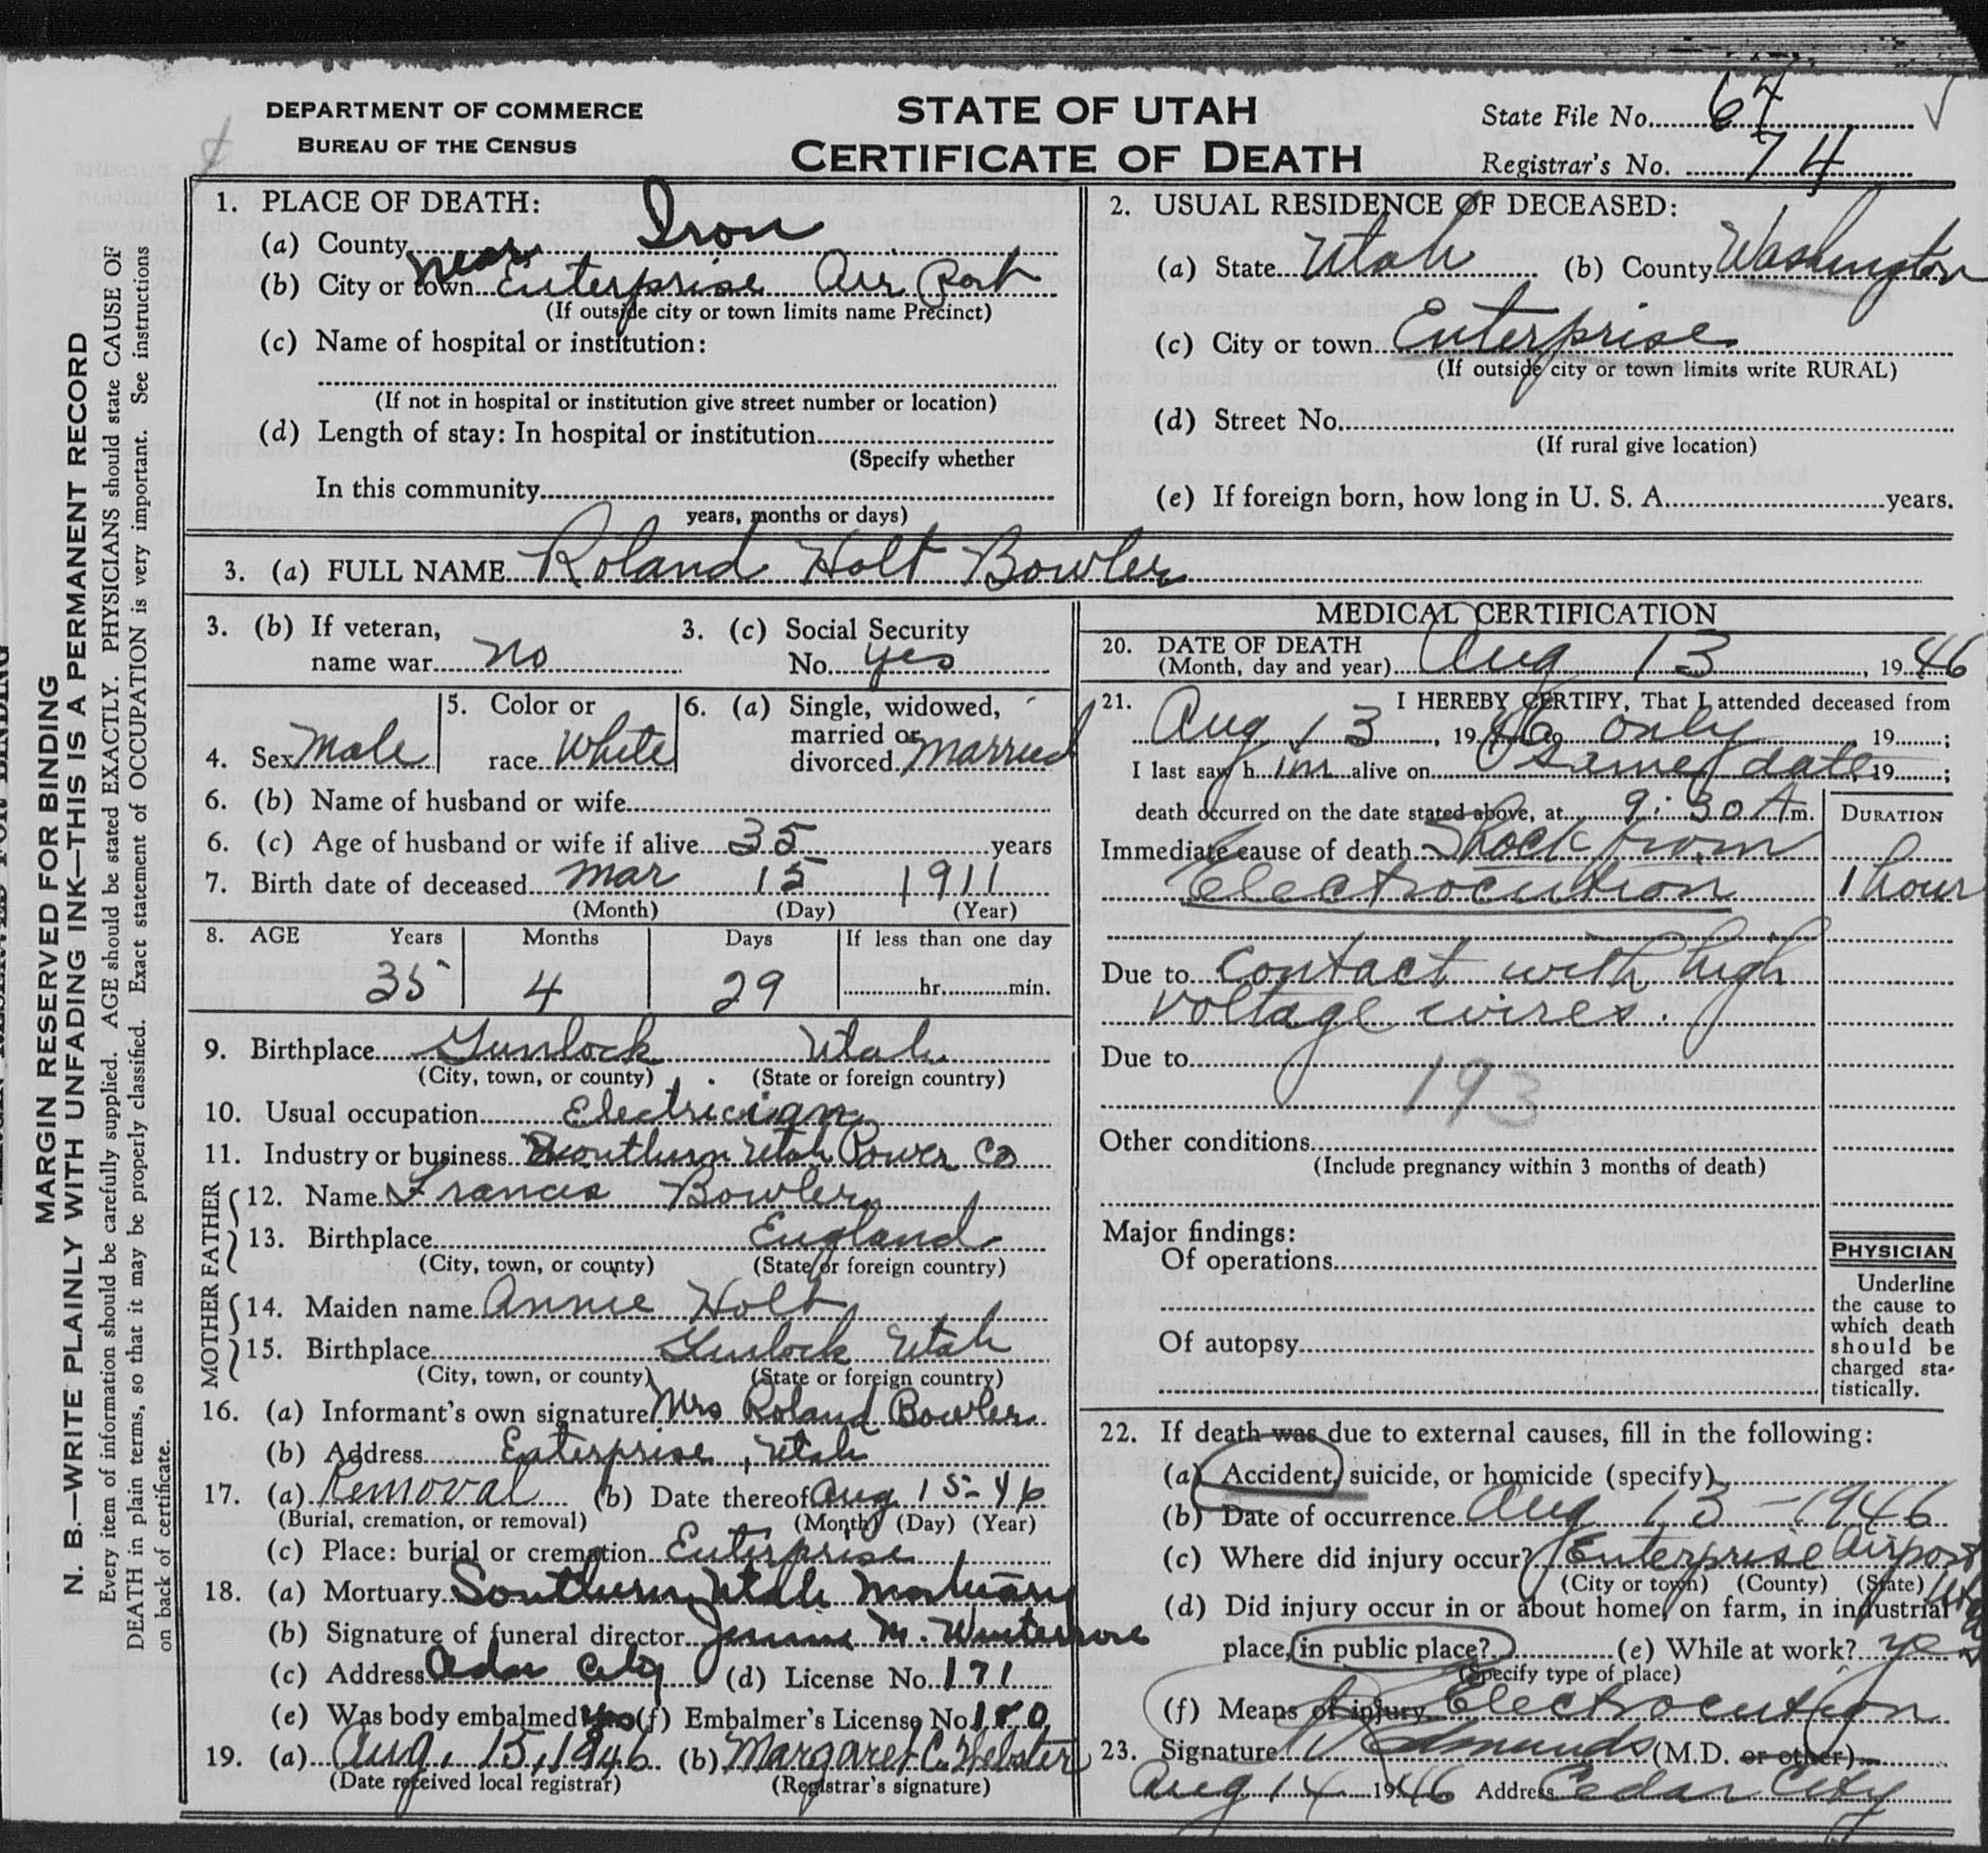 DEPARTMENT OF COMMERCE
BUREAU OF THE CENSUS
STATE OF UTAH
CERTIFICATE OF DEATH
State File No. 67
Registrar's No. 74
MARGIN RESERVED FOR BINDING
N. B.—WRITE PLAINLY WITH UNFADING INK—THIS IS A PERMANENT RECORD
Every item of information should be carefully supplied. AGE should be stated EXACTLY. PHYSICIANS should state CAUSE OF
DEATH in plain terms, so that it may be properly classified. Exact statement of OCCUPATION is very important. See instructions
on back of certificate.
1. PLACE OF DEATH:
(a) County Iron
(b) City or town near Enterprise Air Port
(If outside city or town limits name Precinct)
(c) Name of hospital or institution:
(If not in hospital or institution give street number or location)
(d) Length of stay: In hospital or institution
(Specify whether
In this community
years, months or days)
2. USUAL RESIDENCE OF DECEASED:
(a) State Utah (b) County Washington
(c) City or town Enterprise
(If outside city or town limits write RURAL)
(d) Street No.
(If rural give location)
(e) If foreign born, how long in U. S. A. years.
3. (a) FULL NAME Roland Holt Bowler
3. (b) If veteran,
name war no
3. (c) Social Security
No. yes
4. Sex Male
5. Color or
race White
6. (a) Single, widowed,
married or
divorced Married
6. (b) Name of husband or wife
6. (c) Age of husband or wife if alive 35 years
7. Birth date of deceased Mar 15 1911
(Month) (Day) (Year)
8. AGE Years Months Days If less than one day
35 4 29 hr. min.
9. Birthplace Gunlock Utah
(City, town, or county) (State or foreign country)
10. Usual occupation Electrician
11. Industry or business Southern Utah Power Co
FATHER
12. Name Francis Bowler
13. Birthplace England
(City, town, or county) (State or foreign country)
MOTHER
14. Maiden name Annie Holt
15. Birthplace Gunlock Utah
(City, town, or county) (State or foreign country)
16. (a) Informant's own signature Mrs Roland Bowler
(b) Address Enterprise, Utah
17. (a) Removal (b) Date thereof Aug 15-46
(Burial, cremation, or removal) (Month) (Day) (Year)
(c) Place: burial or cremation Enterprise
18. (a) Mortuary Southern Utah Mortuary
(b) Signature of funeral director M.
(c) Address Cedar City (d) License No. 171
(e) Was body embalmed Yes (f) Embalmer's License No. 180
19. (a) Aug. 15, 1946 (b) Margaret C. Webster
(Date received local registrar) (Registrar's signature)
MEDICAL CERTIFICATION
20. DATE OF DEATH
(Month, day and year) Aug 13, 1946
21. I HEREBY CERTIFY, That I attended deceased from
Aug 13, 1946 to only 19 ;
I last saw h im alive on same date, 19 ;
death occurred on the date stated above, at 9:30 A m.
DURATION
Immediate cause of death Shock from
Electrocution 1 hour
Due to contact with high
voltage wires.
Due to
193
Other conditions
(Include pregnancy within 3 months of death)
Major findings:
Of operations
Of autopsy
PHYSICIAN
Underline
the cause to
which death
should be
charged sta-
tistically.
22. If death was due to external causes, fill in the following:
(a) Accident, suicide, or homicide (specify)
(b) Date of occurrence Aug 13-1946
(c) Where did injury occur? Enterprise Airport Utah
(City or town) (County) (State)
(d) Did injury occur in or about home, on farm, in industrial
place, in public place? (e) While at work? yes
(Specify type of place)
(f) Means of injury Electrocution
23. Signature Edmunds (M.D. or other)
Aug 14 1946 Address Cedar City